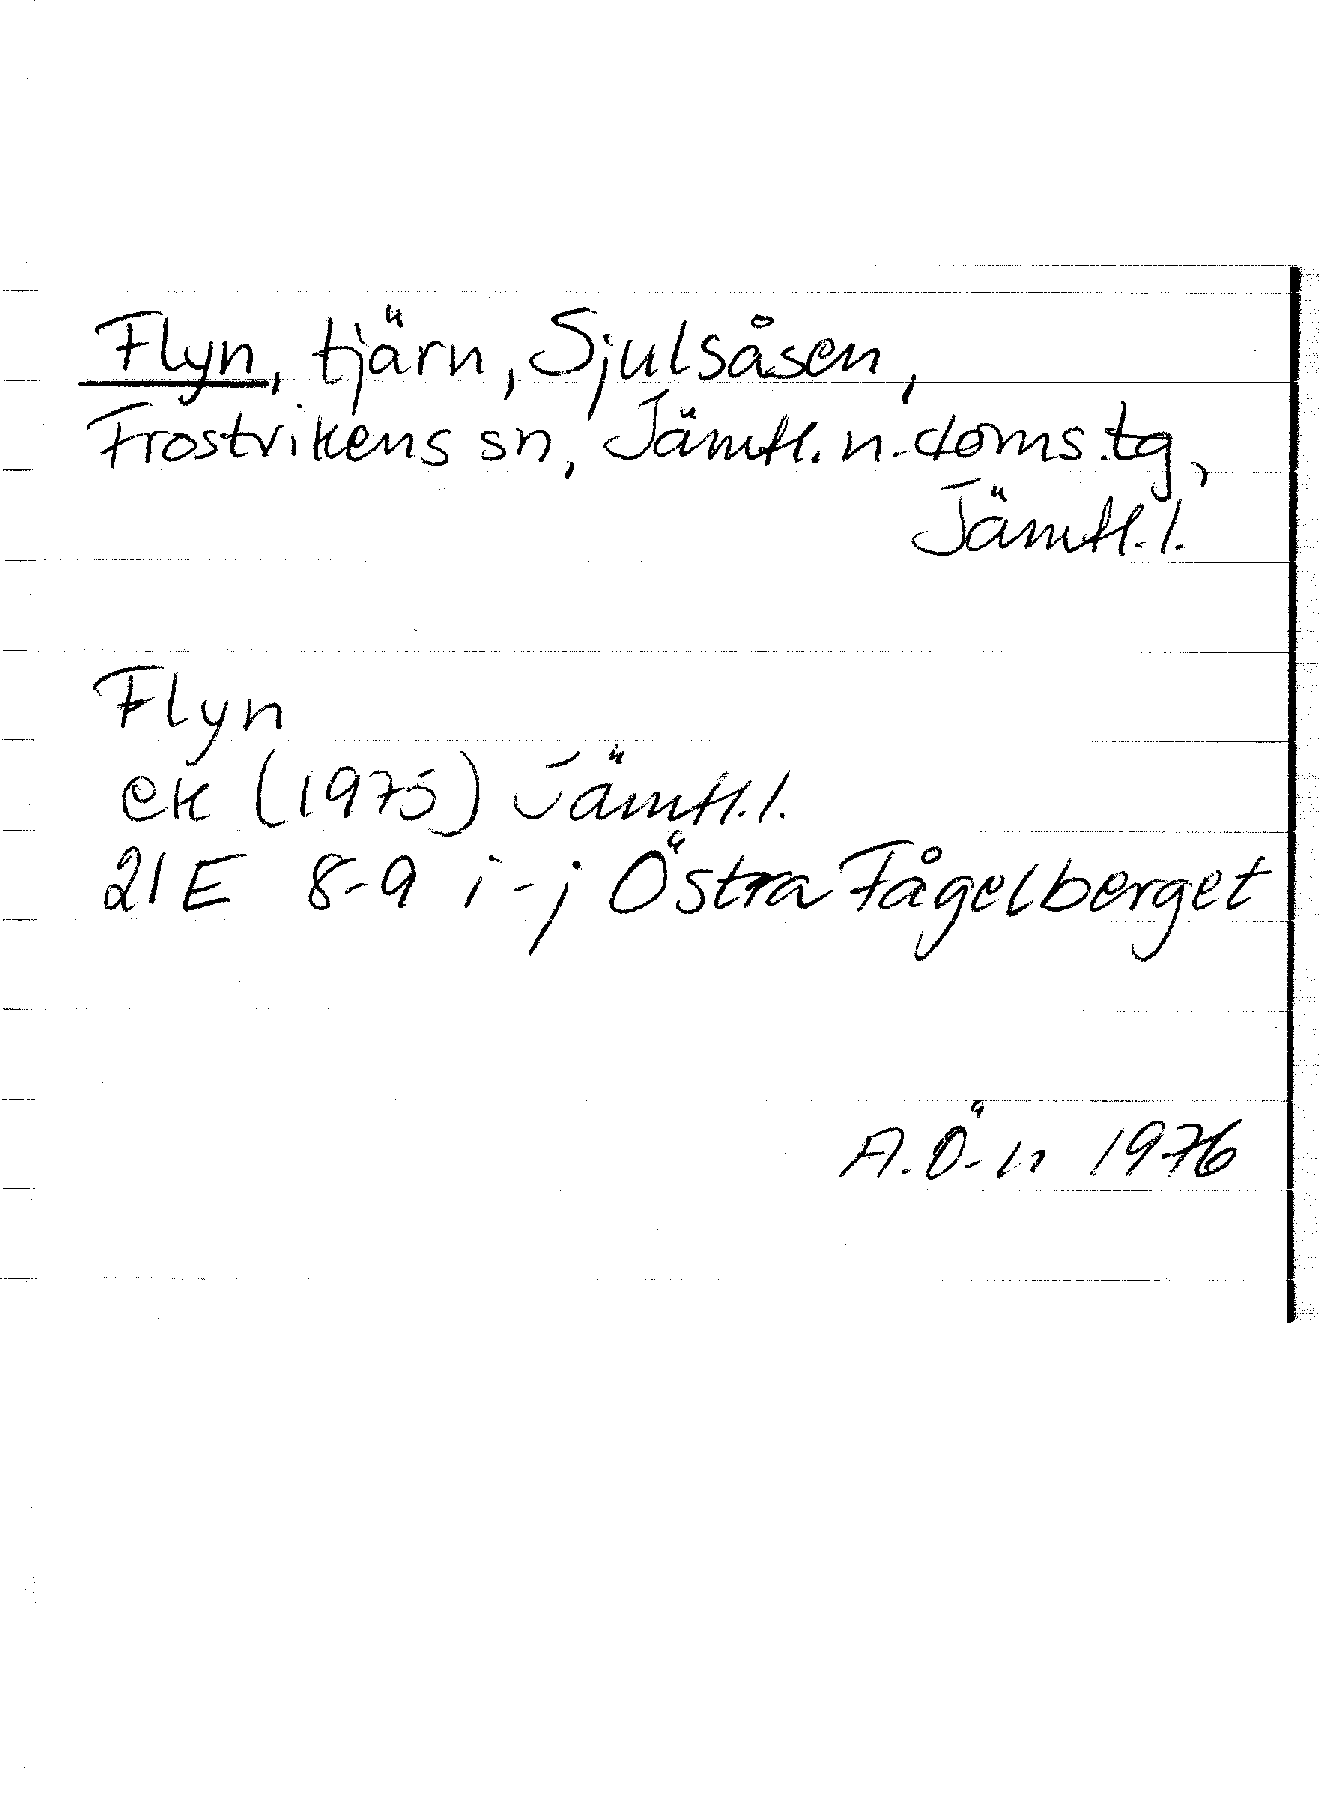 Flyn, tjärn, Sjulsåsen,
Frostvikens sn, Jämtl. n. doms.tg,
Jämtl. l.
Flyn
ek (1975) Jämtl. l.
21 E 8-9 i-j Östra Fågelberget
A. Ö-n 1976